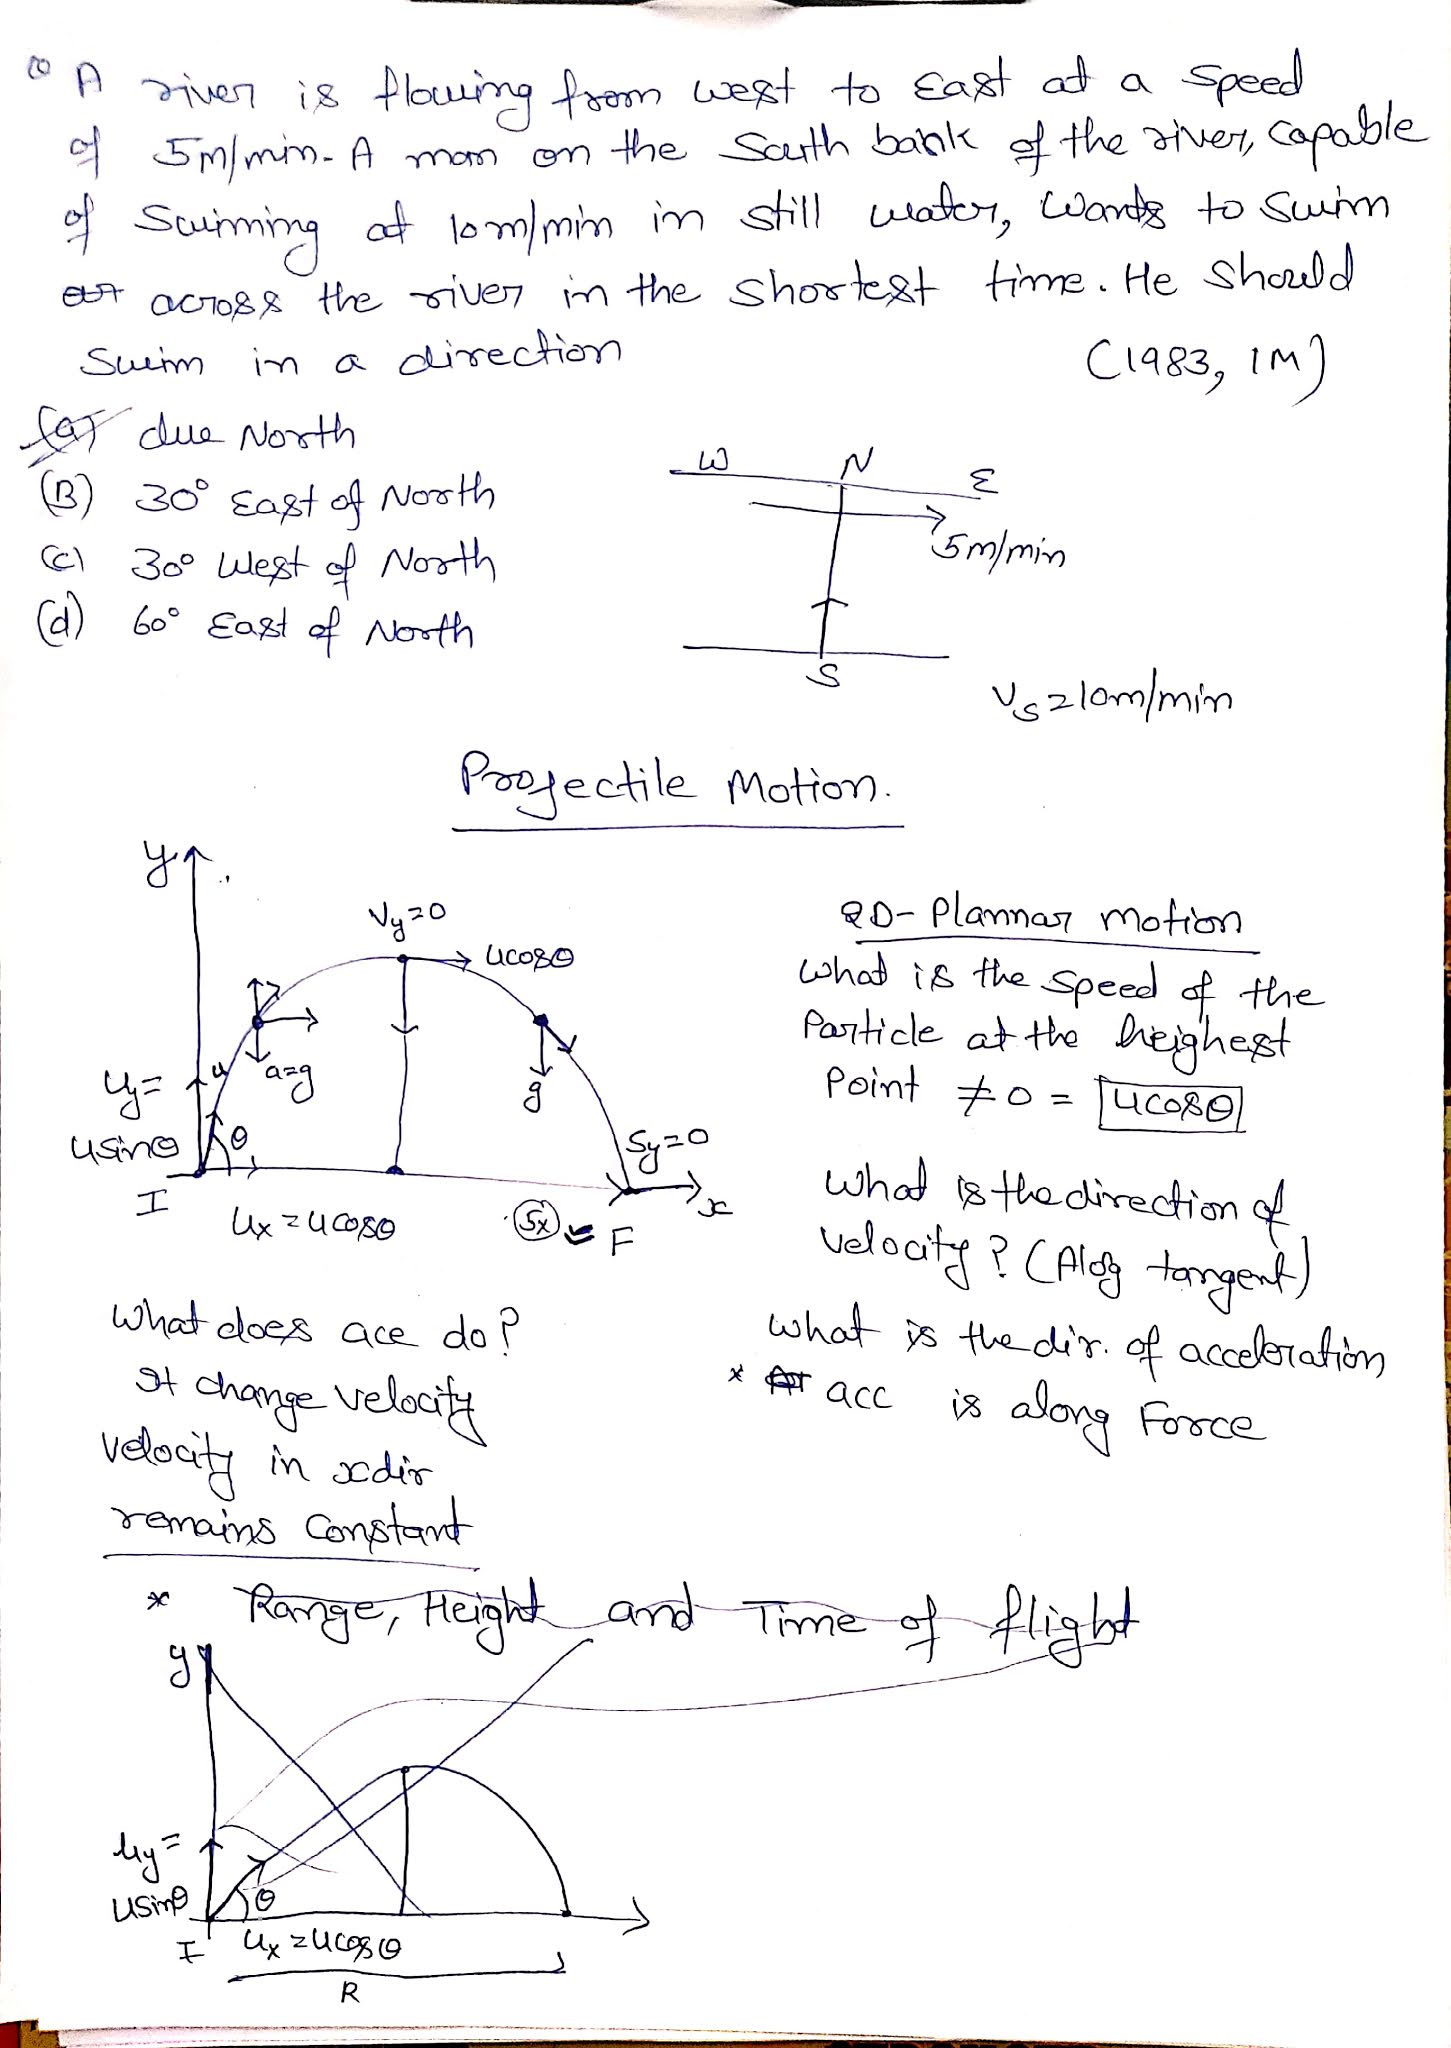 Q A river is flowing from west to East at a Speed
of 5m/min. A man on the South bank of the river, capable
of Swimming at 10m/min in still water, wants to swim
across the river in the shortest time. He should
Swim in a direction (1983, 1M)
(a) due North
(B) 30° East of North
(c) 30° West of North
(d) 60° East of North
W N E
5m/min
S
Vs=10m/min
Projectile Motion.
y
Vy=0
ucosθ
a=g
g
u
uy=
usinθ
θ
Sy=0
I
ux=ucosθ
Sx
F
x
2D- Plannar motion
what is the speed of the
Particle at the heighest
Point ≠0 = ucosθ
what is the direction of
velocity? (Alog tangent)
what is the dir. of acceleration
* acc is along Force
What does ace do?
It change velocity
velocity in xdir
remains constant
* Range, Height and Time of flight
y
uy=
usinθ
θ
I
ux=ucosθ
R